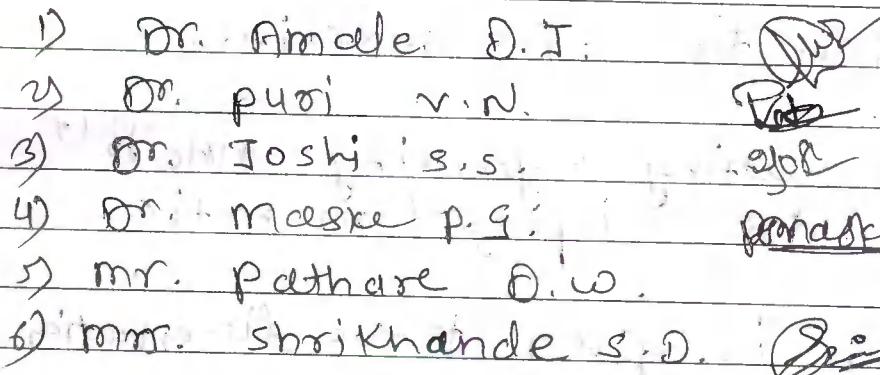 1) Dr. Amale. D.J.
2) Dr. puri v.N.
3) Dr. Joshi. S.S.
4) Dr. Maske p.g.
5) mr. Pathare D.W.
6) mr. Shrikhande S.D.